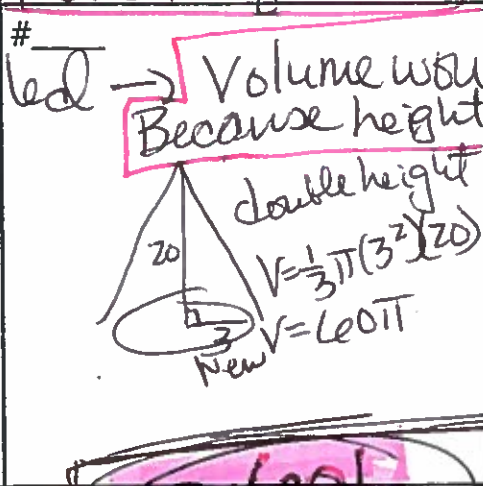 #
led → Volume wou
Because height
double height
20
V=⅓π(3²)(20)
3
New V=60π